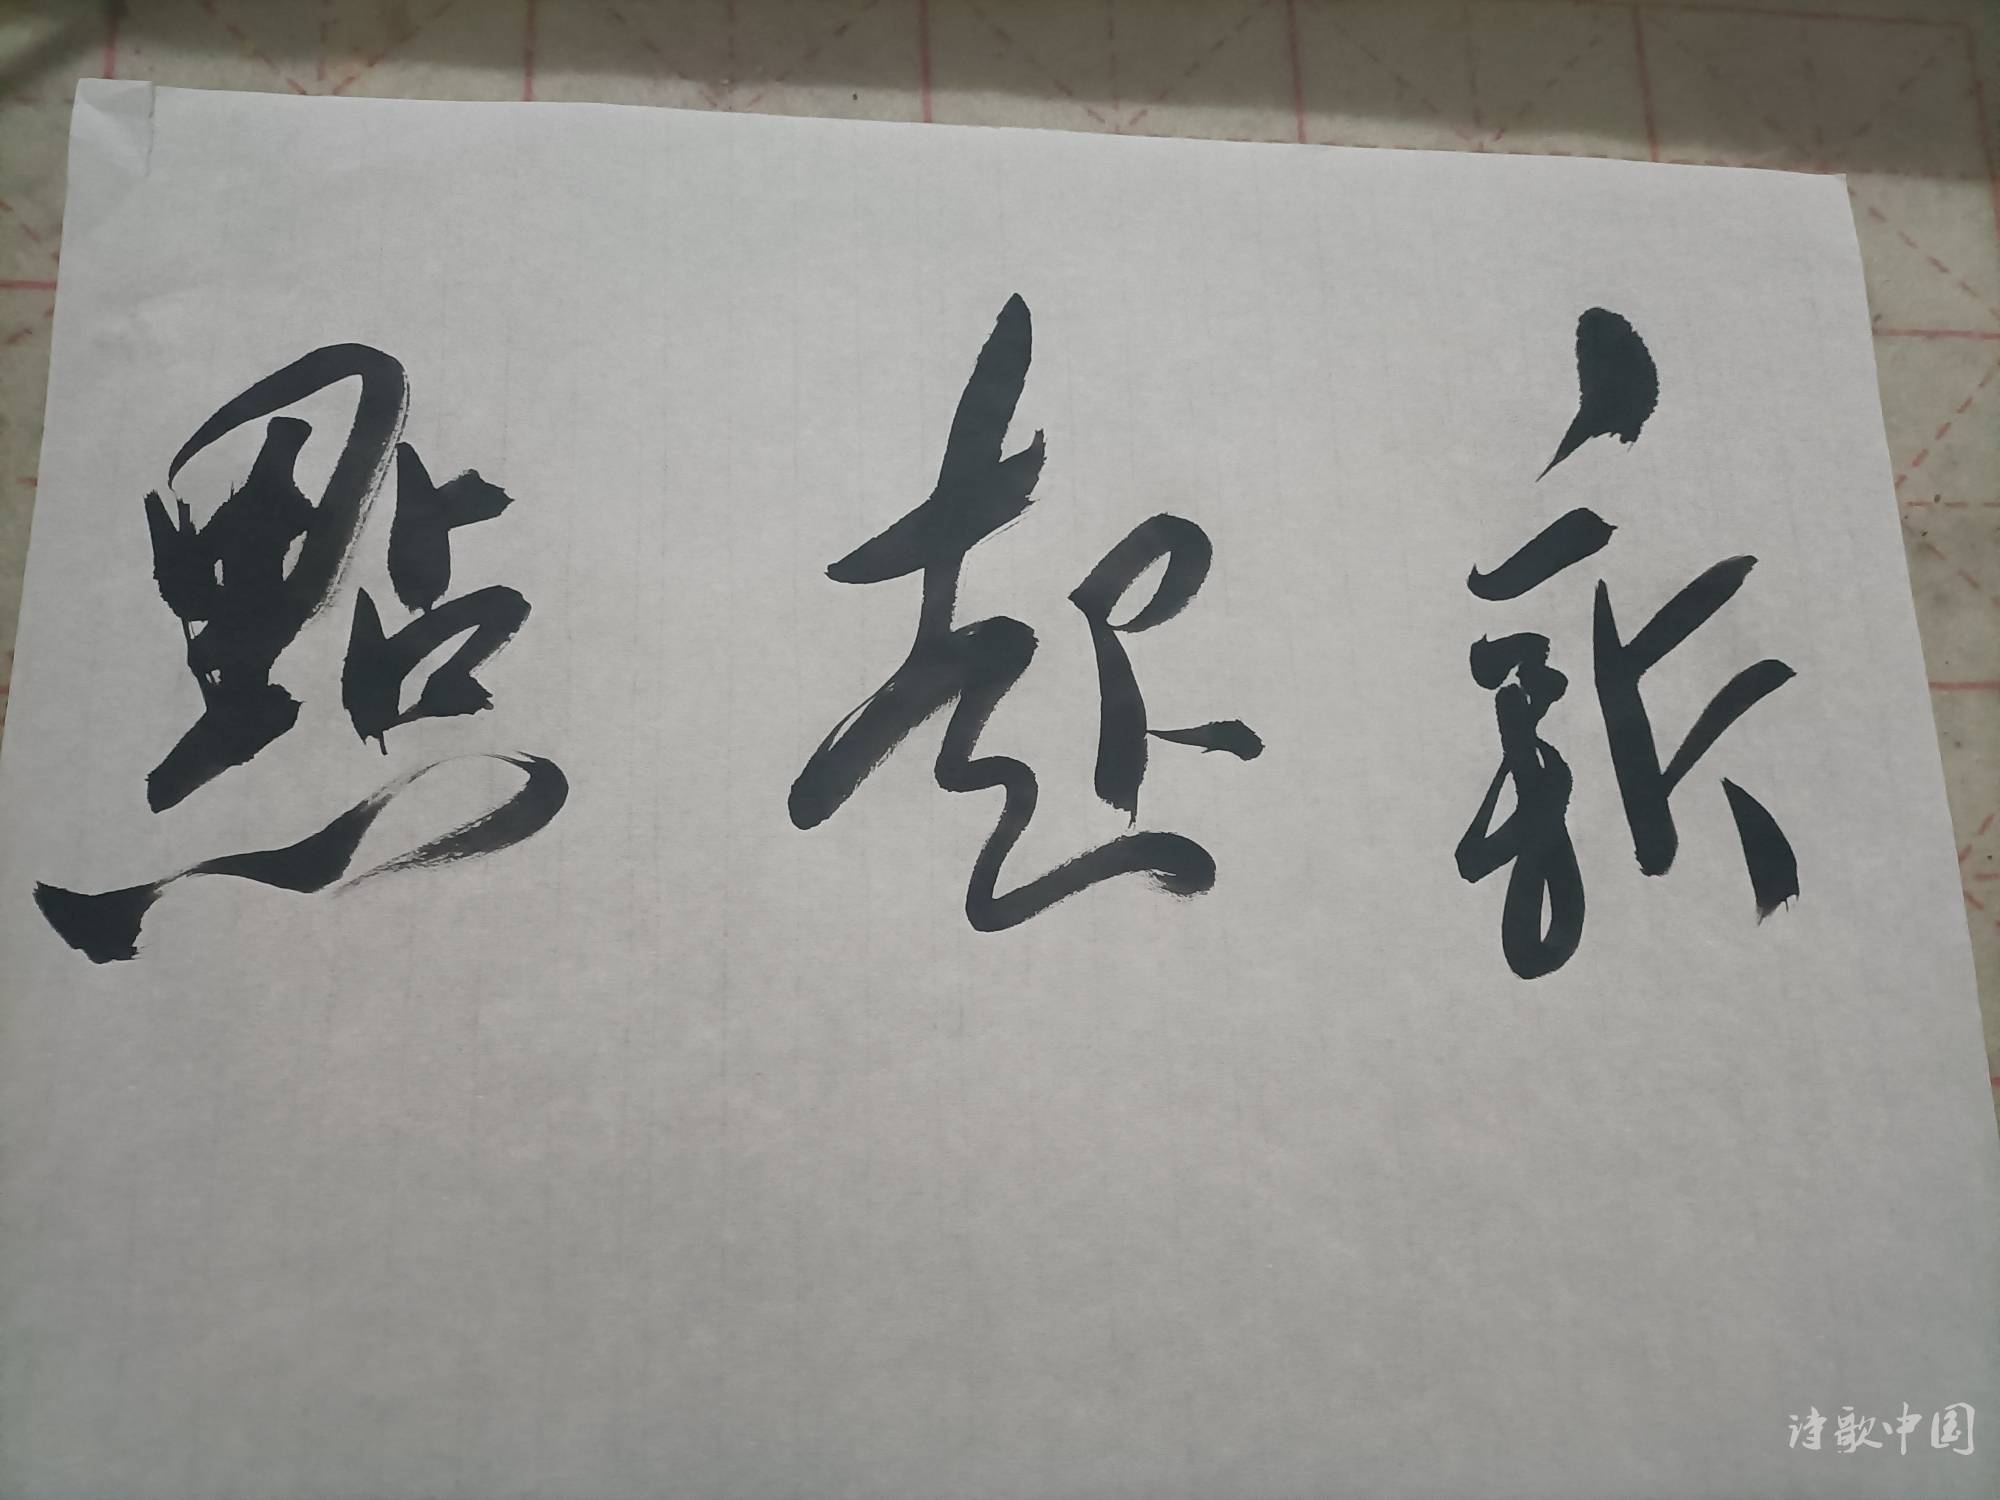 新起點
诗歌中国